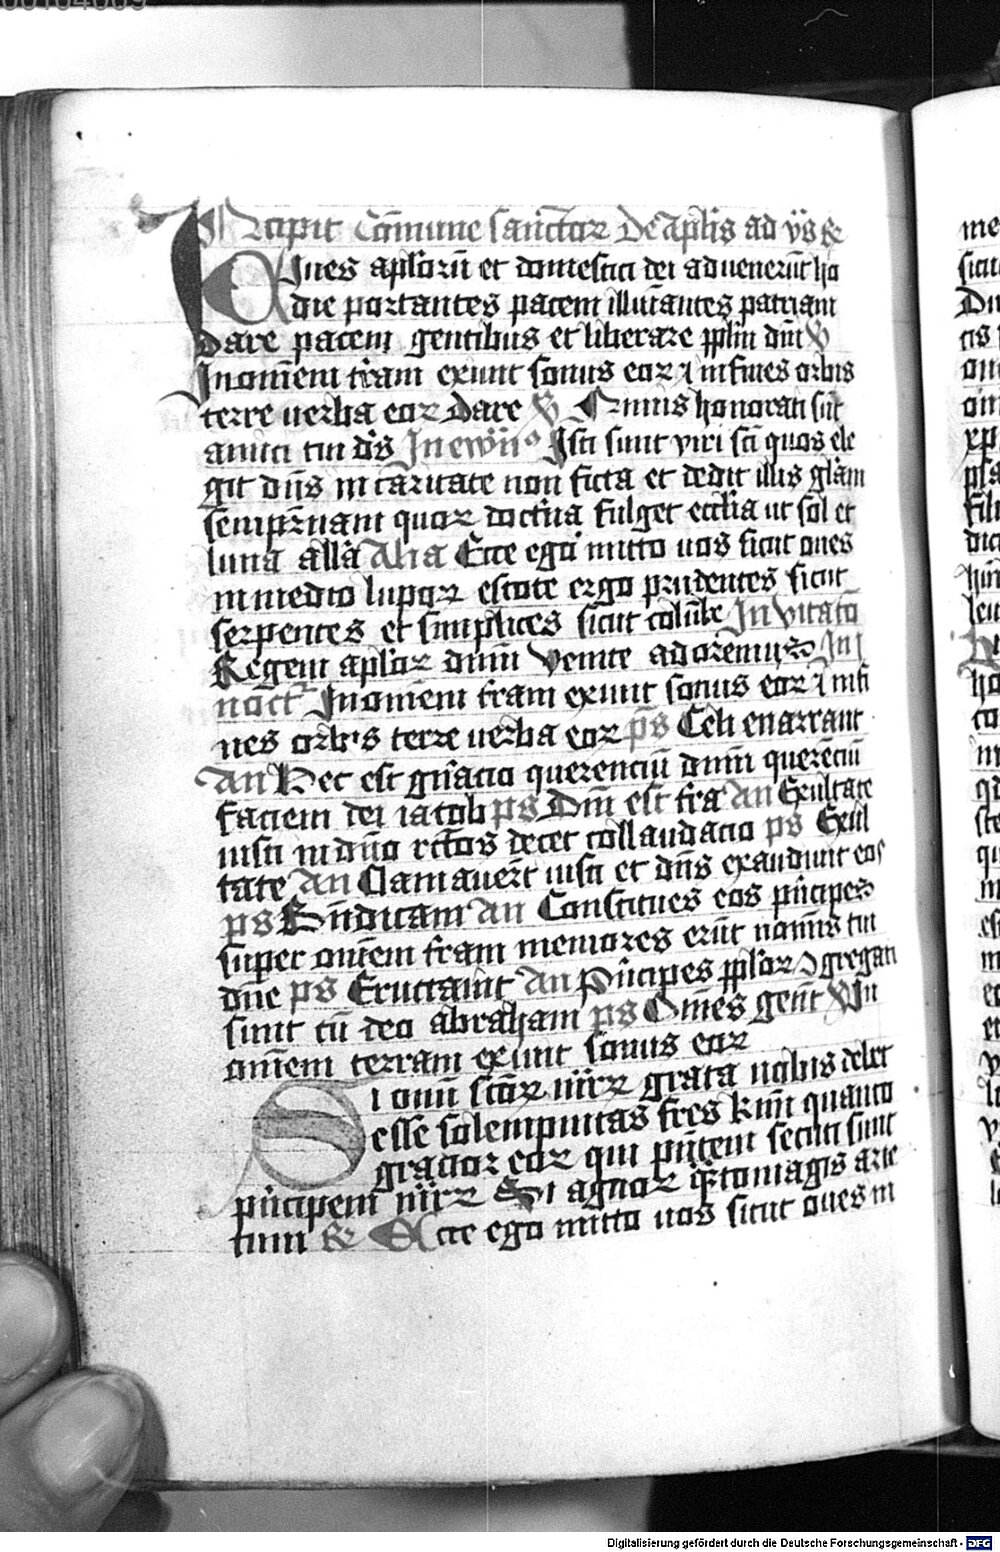 00104009
Incipit Cōmune sanctorꝝ De Apl̄is ad vs̄ ℟
Ciues apl̄orū et domestici dei aduenerūt ho
die portantes pacem illuīantes patriam
dare pacem gentibus et liberare ppl̄m dn̄i ℣
In om̄em tr̄am exiuit sonus eorꝝ ⁊ in fines orbis
terre uerba eorꝝ Dare ℣ Nimis honorati sūt
amici tui ds̄ In ew̄ Isti sunt viri sc̄i quos ele
git dn̄s in caritate non ficta et dedit illis gl̄am
sempr̄nam quorꝝ doctr̄ia fulget eccl̄ia ut sol et
luna all̄a Alia Ecce ego mitto uos sicut oues
in medio luporꝝ estote ergo prudentes sicut
serpentes et simplices sicut colūbe Invitatō
Regem apl̄orꝝ dn̄m Venite adoremus In j
noct̄ In om̄em tr̄am exiuit sonus eorꝝ ⁊ in fi
nes orbis terre uerba eorꝝ ps̄ Celi enarrant
An Hec est gn̄acio querenciū dn̄m querenciū
faciem dei iacob ps Dn̄i est tr̄a An Exultate
iusti in dn̄o rectos decet collaudacio ps Exul
tate An Clamauer̄t iusti et dn̄s exaudiuit eos
ps Bn̄dicam An Constitues eos pn̄cipes
super om̄em tr̄am memores erūt nomīs tui
dn̄e ps Eructauit An Pn̄cipes ppl̄orꝝ ꝯgregati
sunt cū deo abraham ps Om̄es gent̄ ℣ In
om̄em terram exiuit sonus eorꝝ
Si om̄i sc̄orꝝ nr̄ꝝ grata nobis debet
esse solempnitas fr̄es km̄i quanto
gracior eorꝝ qui pn̄tem secuti sunt
pn̄cipem nr̄ꝝ Si agnorꝝ qn̄to magis arie
tum ℟ Ecce ego mitto uos sicut oues in
Digitalisierung gefördert durch die Deutsche Forschungsgemeinschaft - DFG